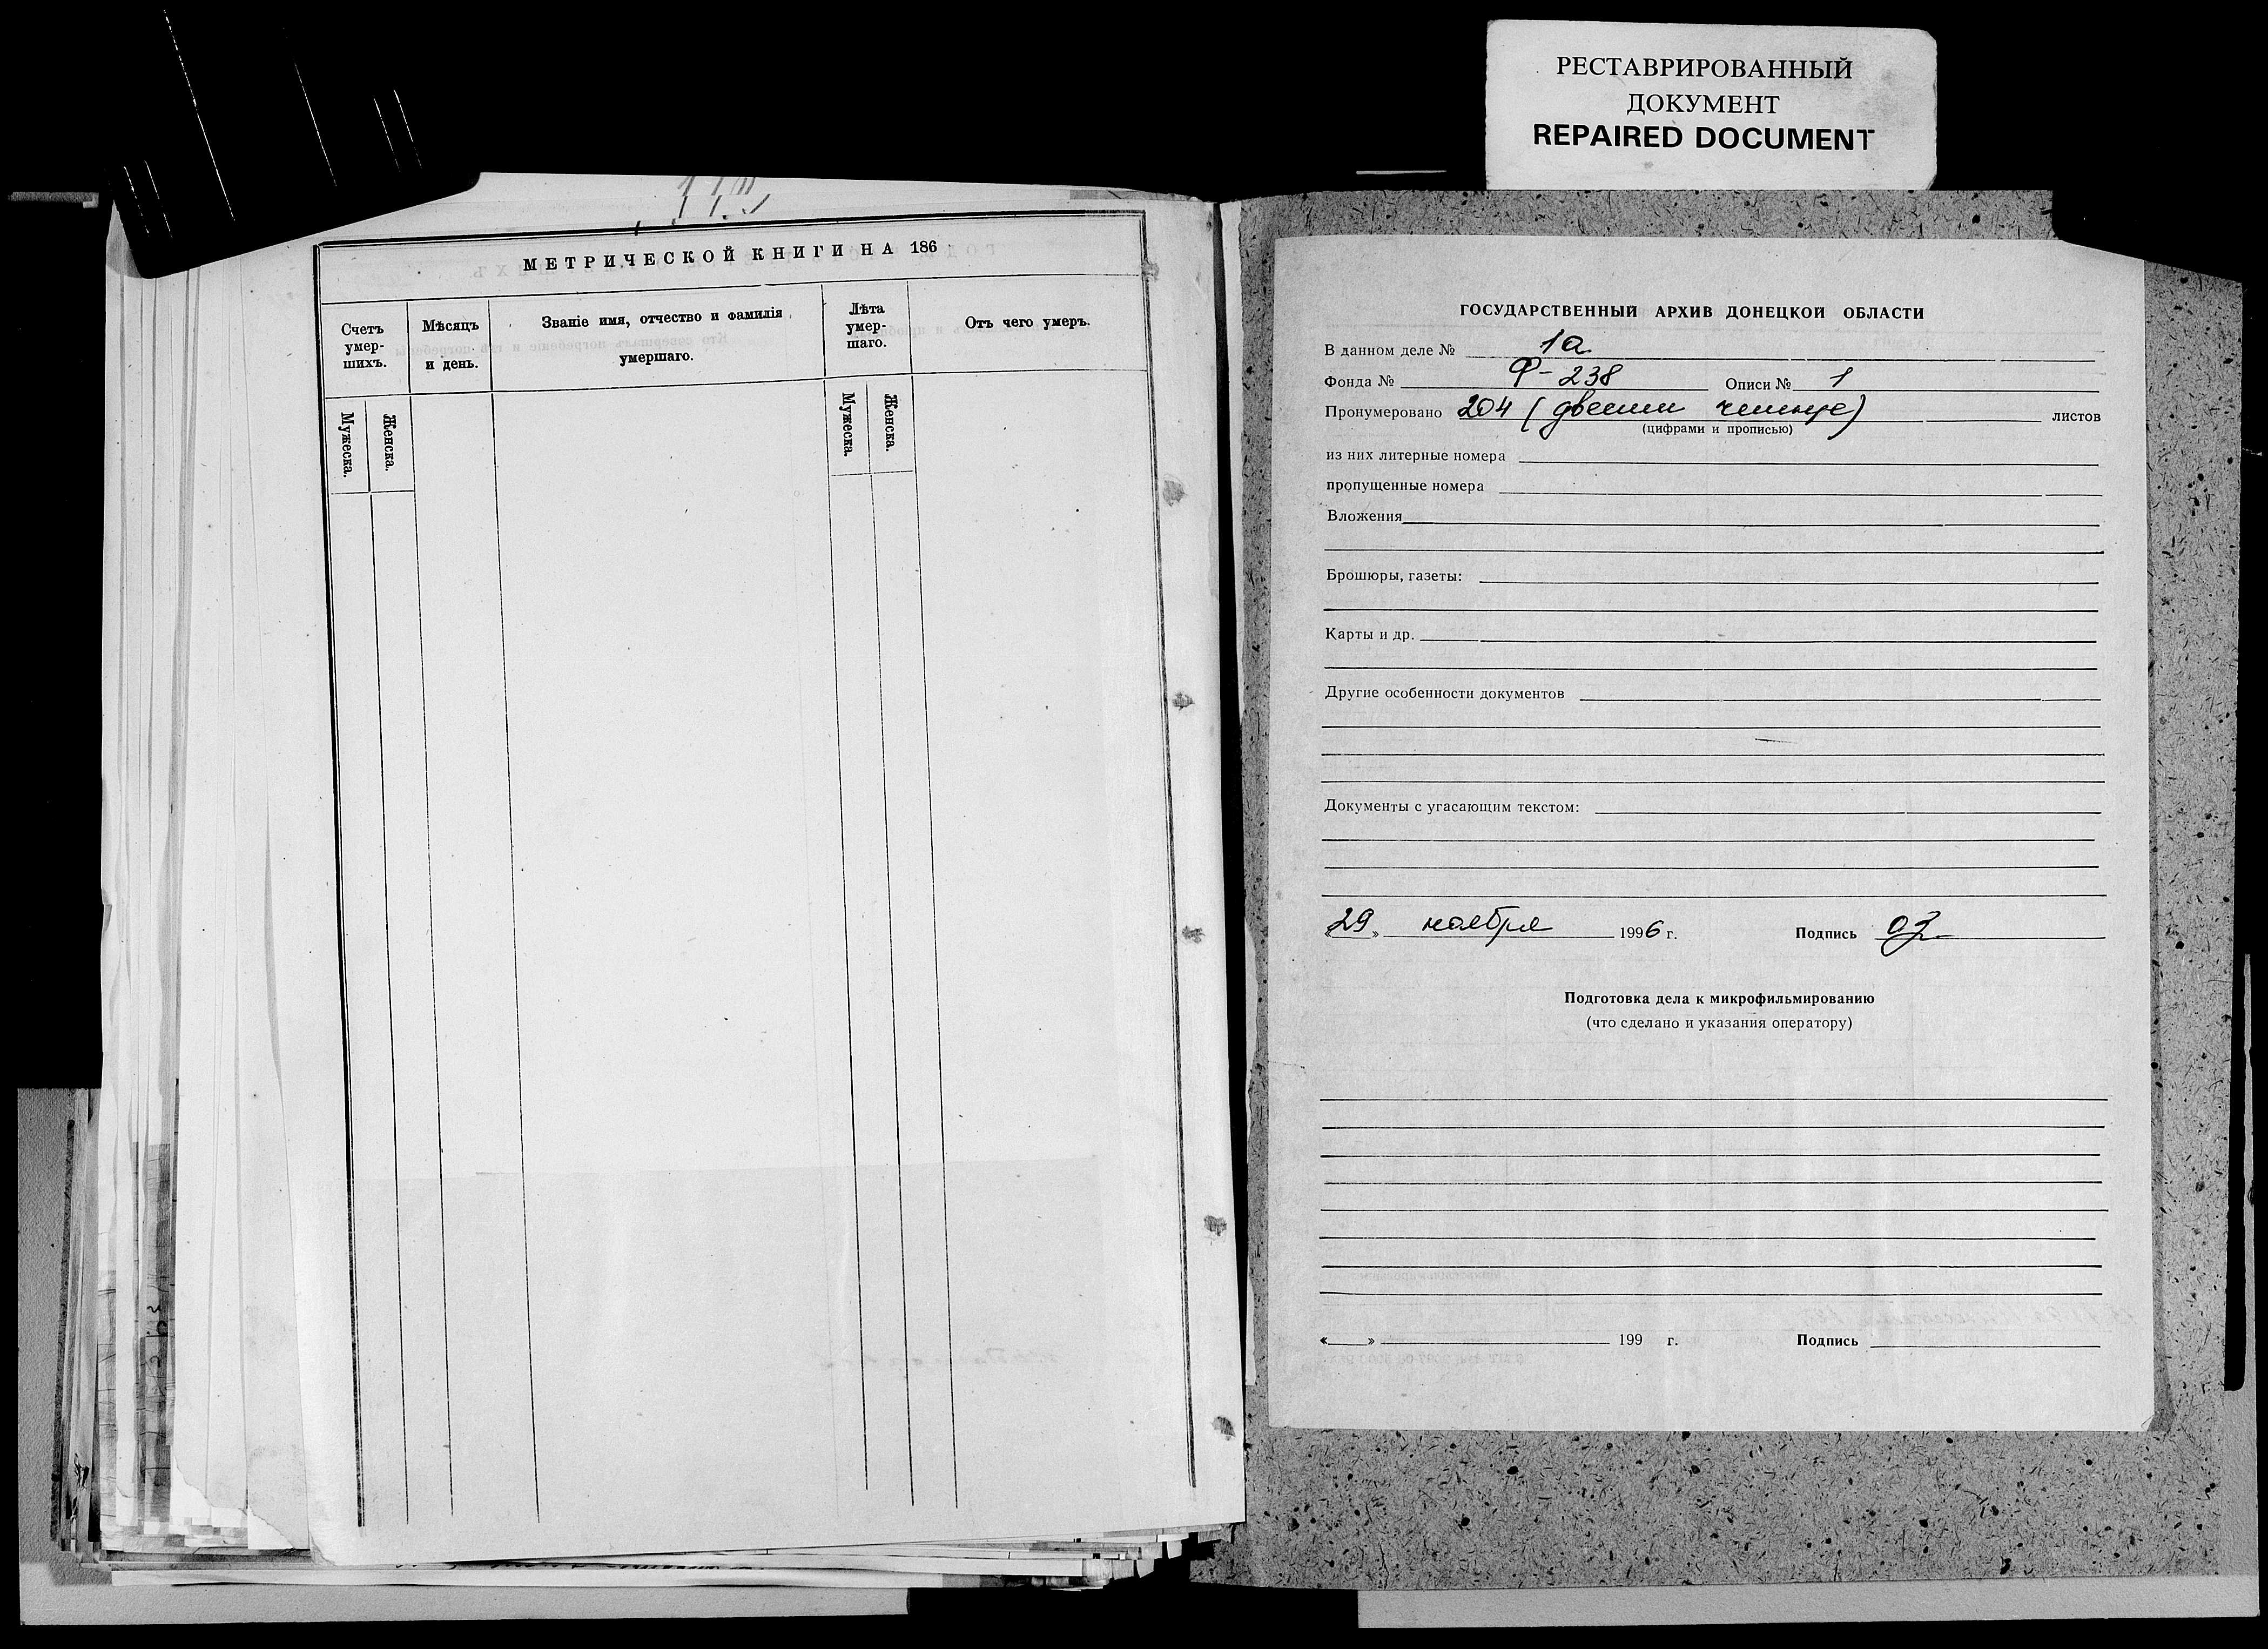 РЕСТАВРИРОВАННЫЙ
ДОКУМЕНТ
REPAIRED DOCUMENT
МЕТРИЧЕСКОЙ КНИГИ НА 186
Счетъ умер-шихъ.
Мѣсяцъ и день.
Званіе имя, отчество и фамилія умершаго.
Лѣта умер-шаго.
Отъ чего умеръ.
Мужеска.
Женска.
Мужеска.
Женска.
ГОСУДАРСТВЕННЫЙ АРХИВ ДОНЕЦКОЙ ОБЛАСТИ
В данном деле № 1а
Фонда № Ф-238 Описи № 1
Пронумеровано 204 (двести четыре) листов
(цифрами и прописью)
из них литерные номера
пропущенные номера
Вложения
Брошюры, газеты:
Карты и др.
Другие особенности документов
Документы с угасающим текстом:
«29» ноября 1996 г. Подпись
Подготовка дела к микрофильмированию
(что сделано и указания оператору)
« » 199 г. Подпись